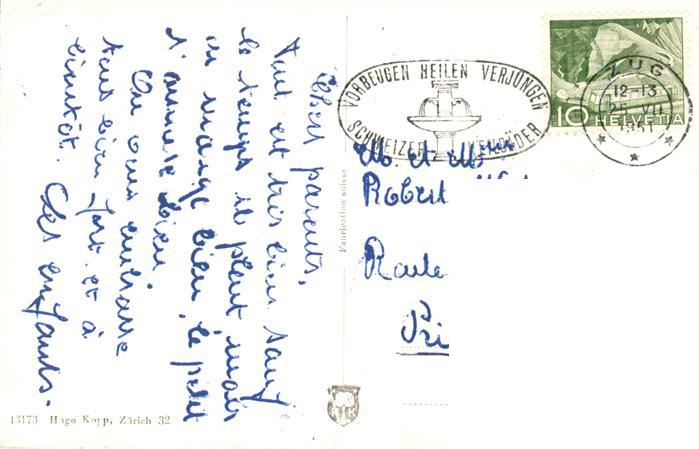 Chers parents,
Tout est très bien sauf
le temps il pleut mais
on mange bien, le petit
s'amuse bien.
On vous embrasse
tous bien fort et à
bientôt. Les enfants.
13173 Hugo Kopp, Zürich 32
Fabrication suisse
VORBEUGEN HEILEN VERJÜNGEN
SCHWEIZER HEILBÄDER
ZUG
12-13
25.VII
1951
10 HELVETIA
M. et Mme
Robert
Route
Pri